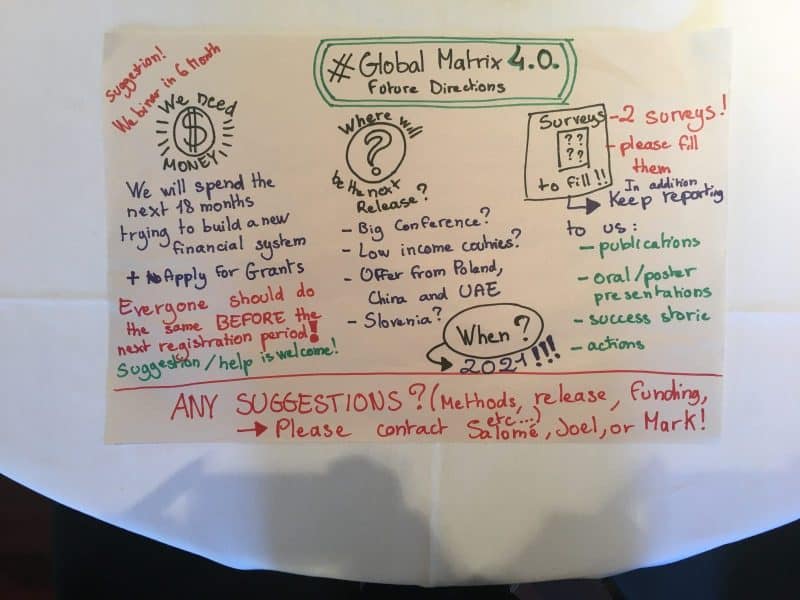 # Global Matrix 4.0.
Future Directions
Suggestion!
Webinar in 6 Month
We need
$
MONEY
We will spend the
next 18 months
trying to build a new
financial system
+ Apply For Grants
Everyone should do
the same BEFORE the
next registration period!
Suggestion / help is welcome!
Where will
?
be the next
Release?
- Big Conference?
- Low income coutries?
- Offer from Poland,
China and UAE
- Slovenia?
When?
2021!!!
Surveys
??
??
to fill!!
- 2 surveys!
- please fill
them
In addition
Keep reporting
to us:
- publications
- oral/poster
presentations
- success storie
- actions
ANY SUGGESTIONS? (Methods, release, Funding,
etc...)
→ Please contact Salomé, Joel, or Mark!